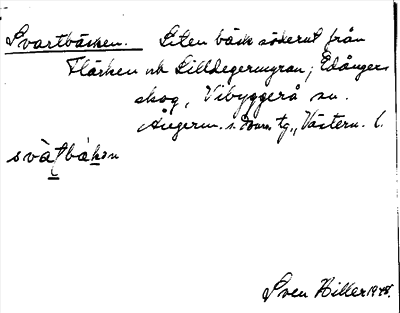 Svartbäcken. Liten bäck söderut från
Flärken och Lilldegermyran, Edånger
skog, Vibyggerå sn.
Ångerm. s. Doms. tg., Västern. l.
svàtbàkən
Sven Hiller 1948.